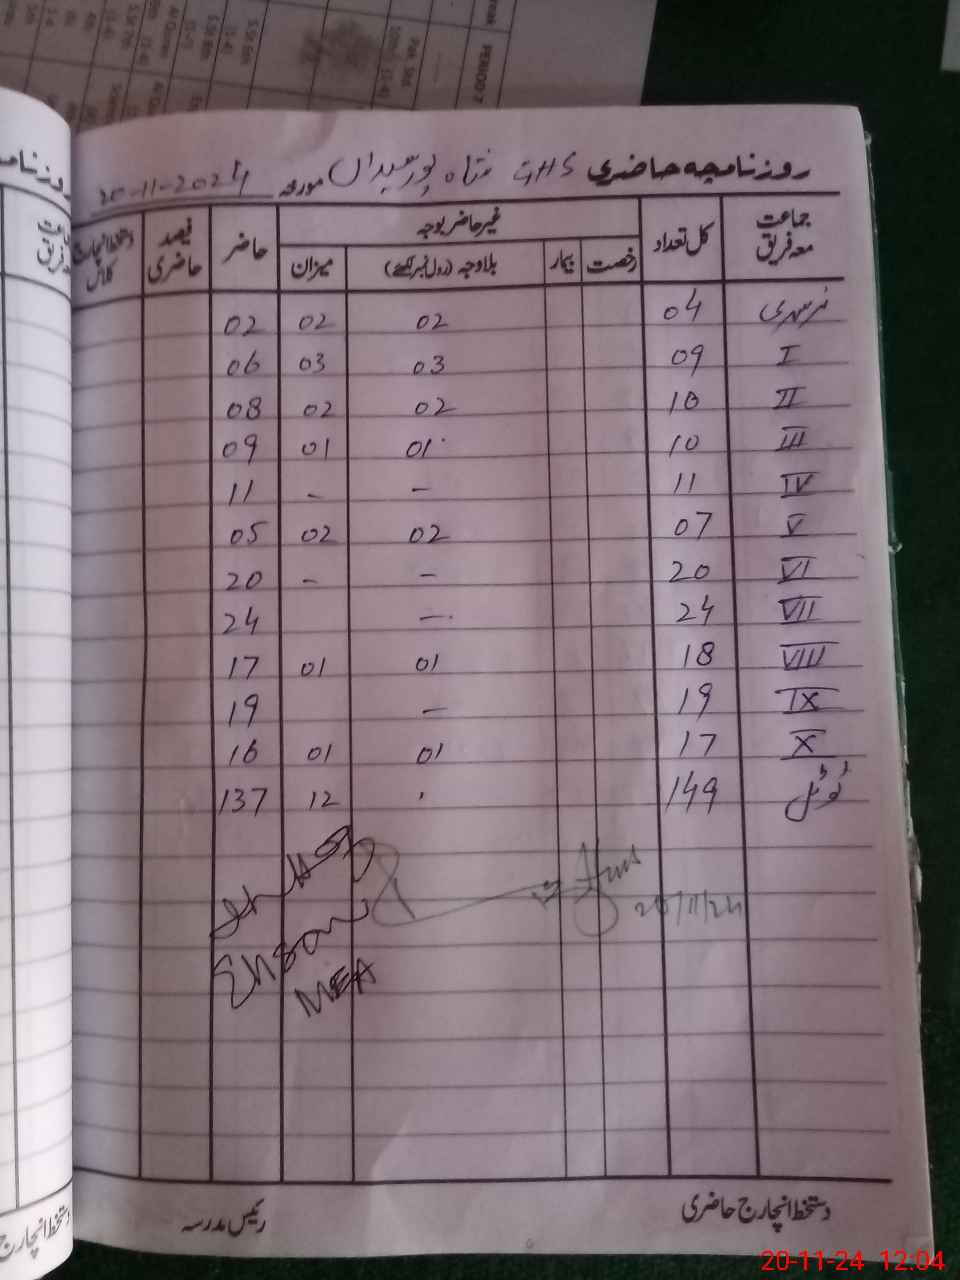 روزنامچہ حاضری GHS شاہ پور سیداں مورخہ 20-11-2024
جماعت معہ فریق کل تعداد غیر حاضر بوجہ حاضر فیصد حاضری دستخط انچارج کلاس
رخصت بیمار بلاوجہ (رول نمبر لکھئے) میزان
نرسری 04 02 02 02
I 09 03 03 06
II 10 02 02 08
III 10 01 01 09
IV 11 - - 11
V 07 02 02 05
VI 20 - - 20
VII 24 - 24
VIII 18 01 01 17
IX 19 - 19
X 17 01 01 16
ٹوٹل 149 12 137
20/11/24
Ehsan
MEA
دستخط انچارج حاضری رئیس مدرسہ
PERIOD 7
20-11-24 12:04